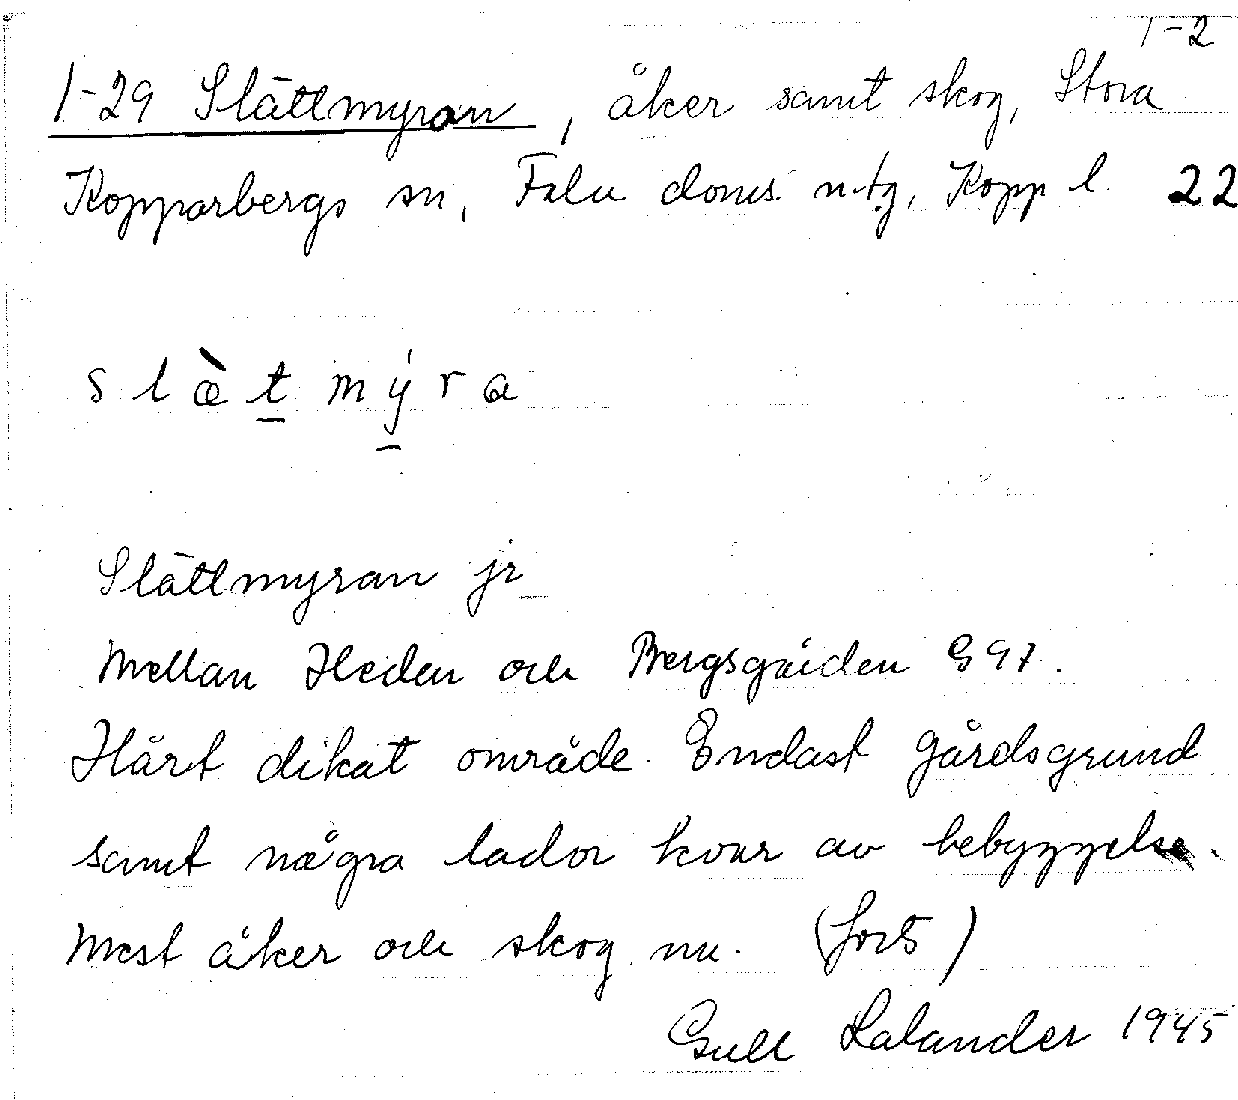 1-2
1-29 Slättmyran, åker samt skog, Stora
Kopparbergs sn, Falu doms. utg, Kopp l. 22
s l æ̀ t m ý r a
Slättmyran jr
Mellan Heden och Bergsgården G 97.
Hårt dikat område. Endast gårdsgrund
samt några lador kvar av bebyggelse.
Mest åker och skog nu. (forts)
Gull Lalander 1945